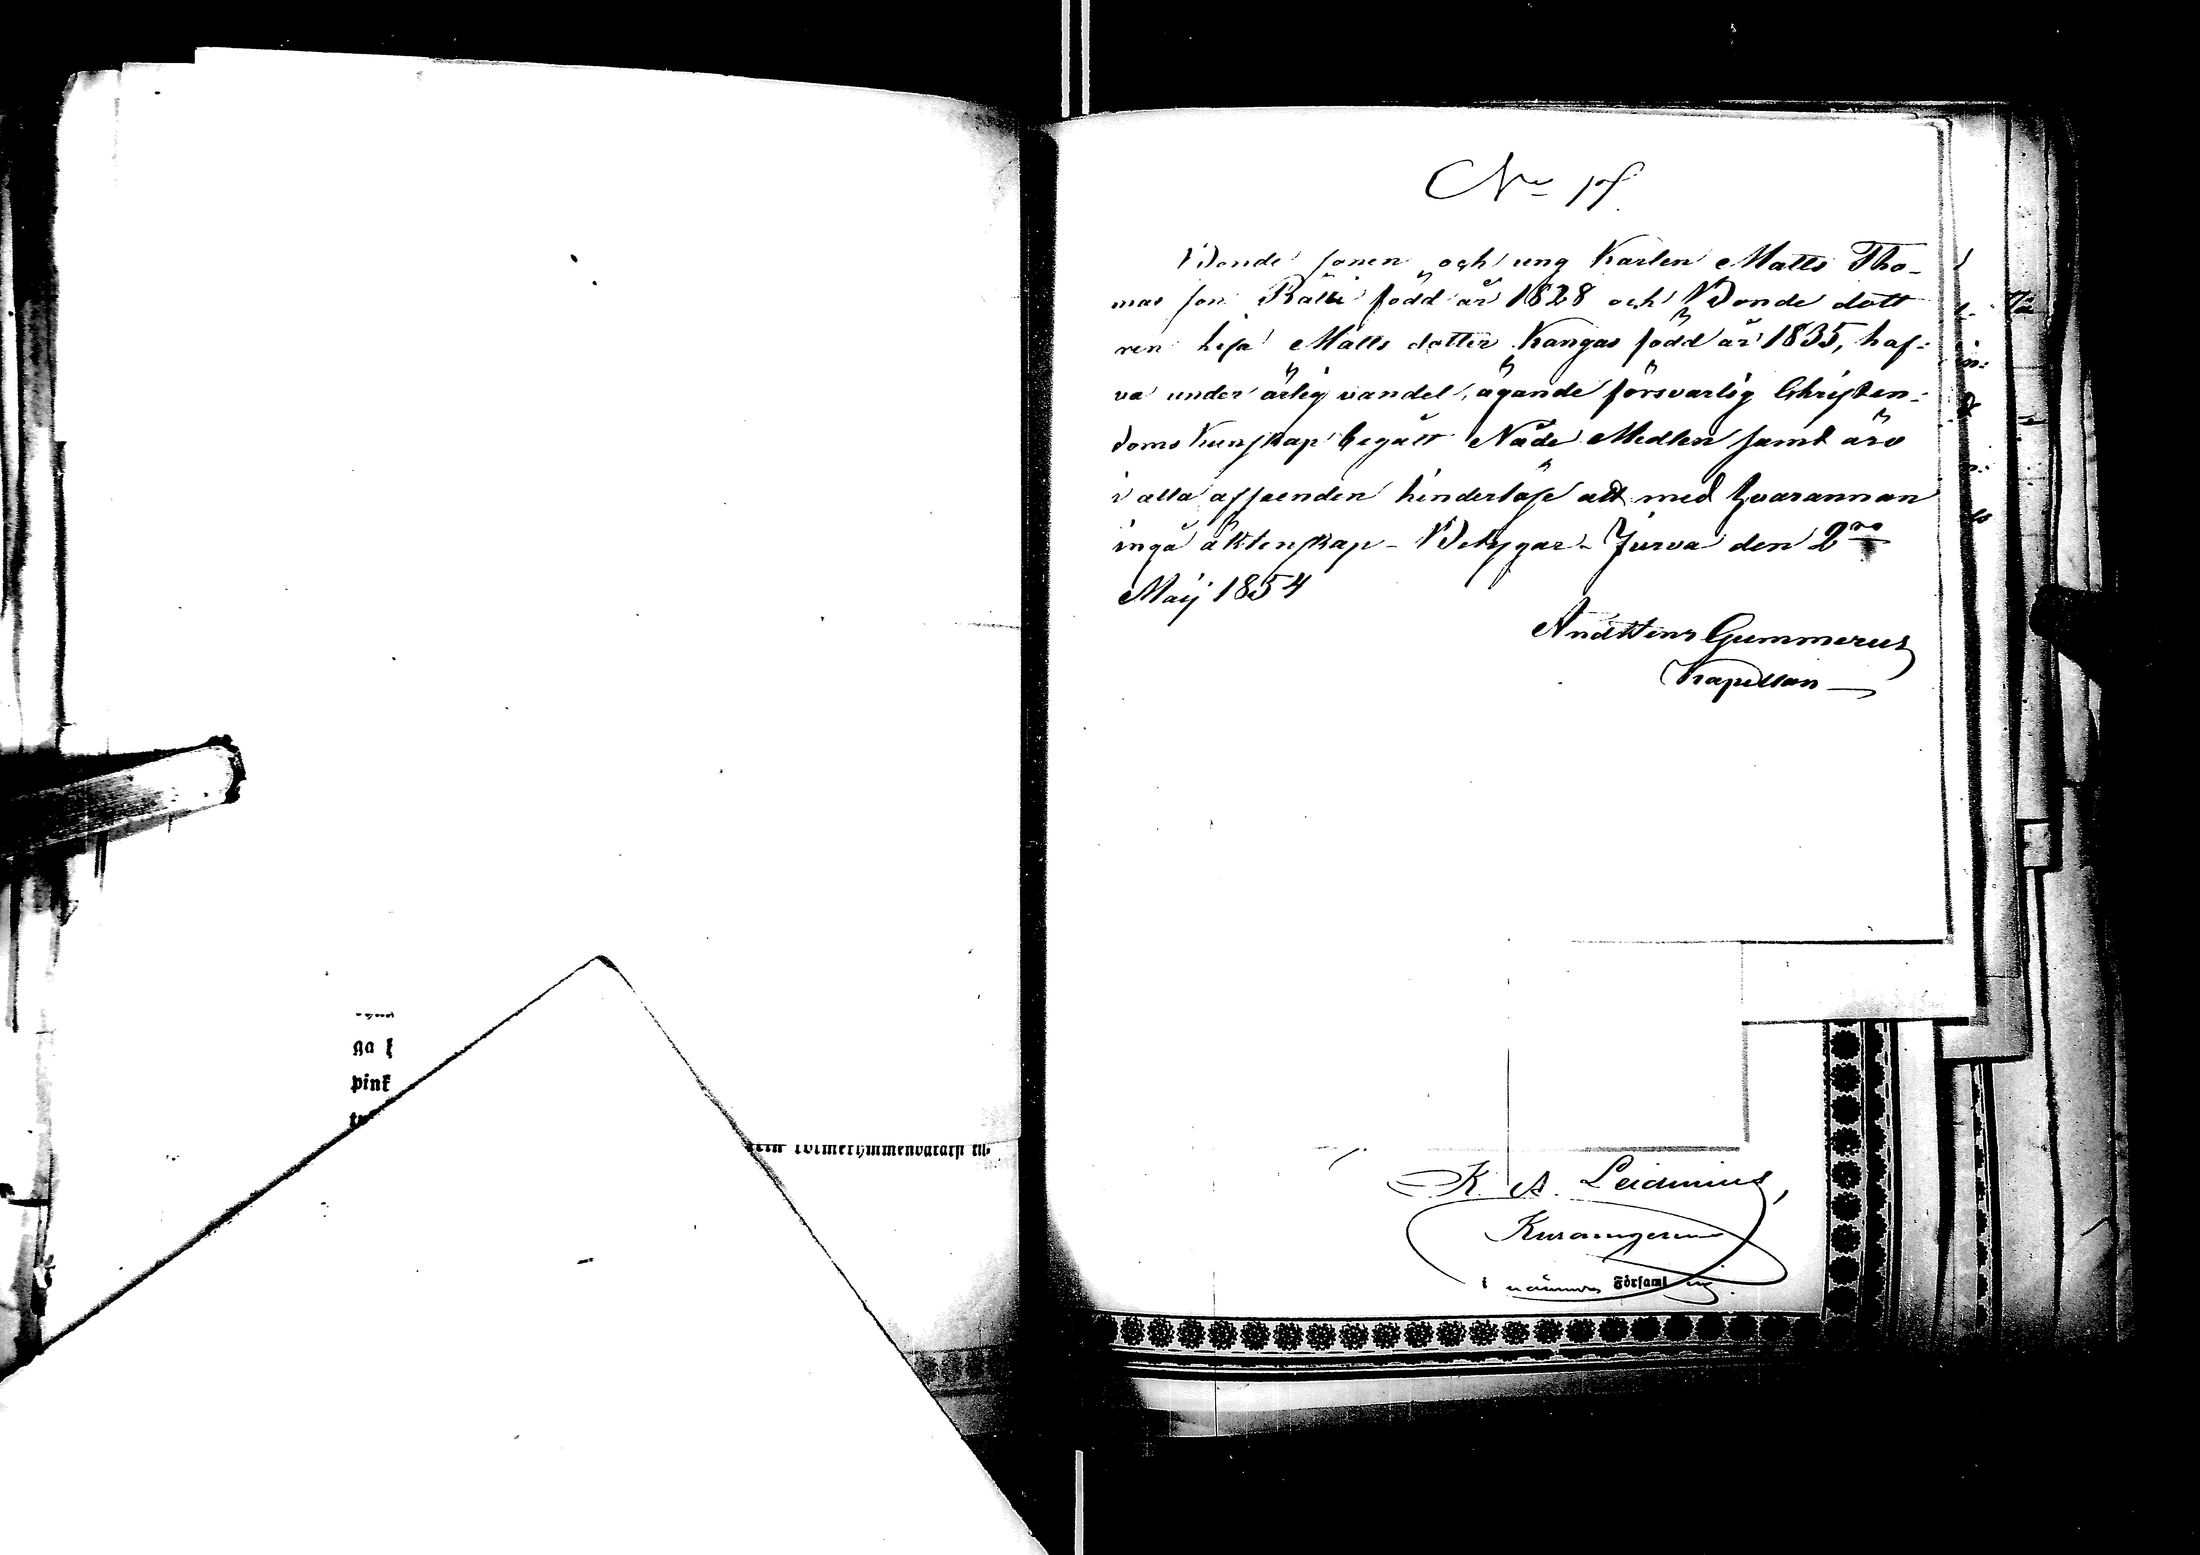 ga
pink
No
Bonde sonen och ung Karlen Matts Tho-
mas son Rätti född år 1828 och Bonde dott
ren Lisa Matts dotter Kangas född år 1835, haf-
va under ärlig vandel, ägande försvarlig Christen-
doms Kunskap begått Nåde Medlen samt äro
i alla afseenden hinderlöse att med hvarannan
ingå äktenskap - Betygar - Jurva den 2
Maij 1854
Gummerus
Kapellan
K. A. Leidenius,
i Församl